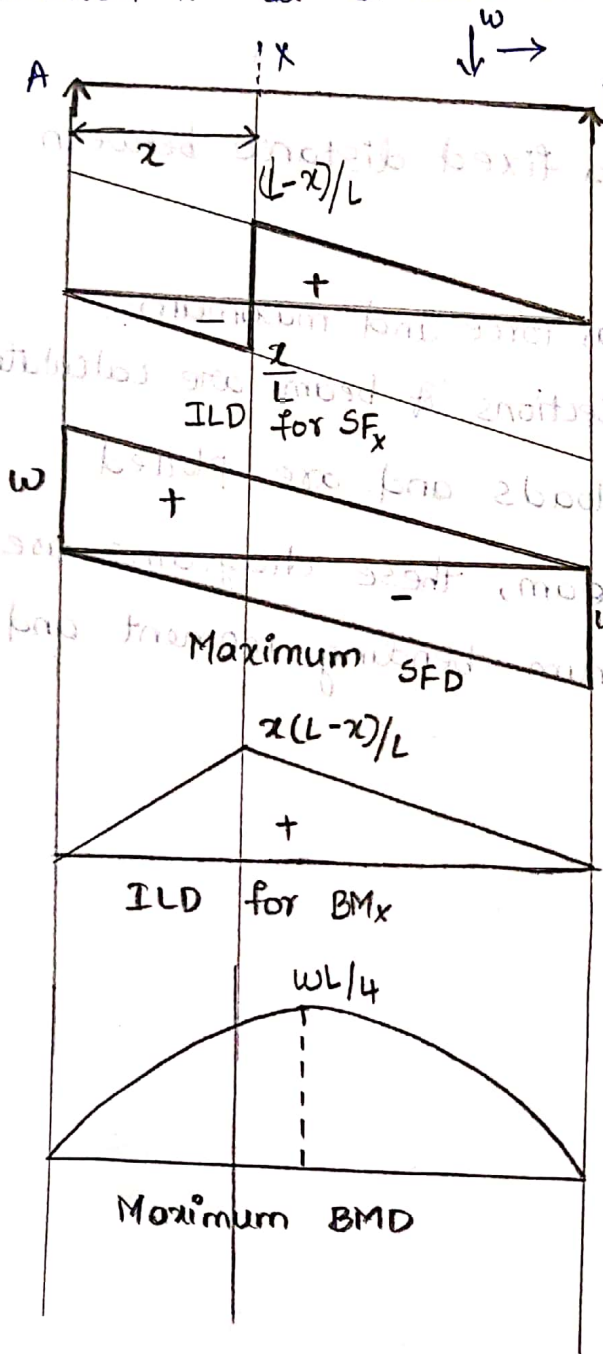 w
A
X
x
(L-x)/L
+
-
x/L
ILD for SFx
w
+
-
Maximum SFD
x(L-x)/L
+
ILD for BMx
WL/4
Moximum BMD